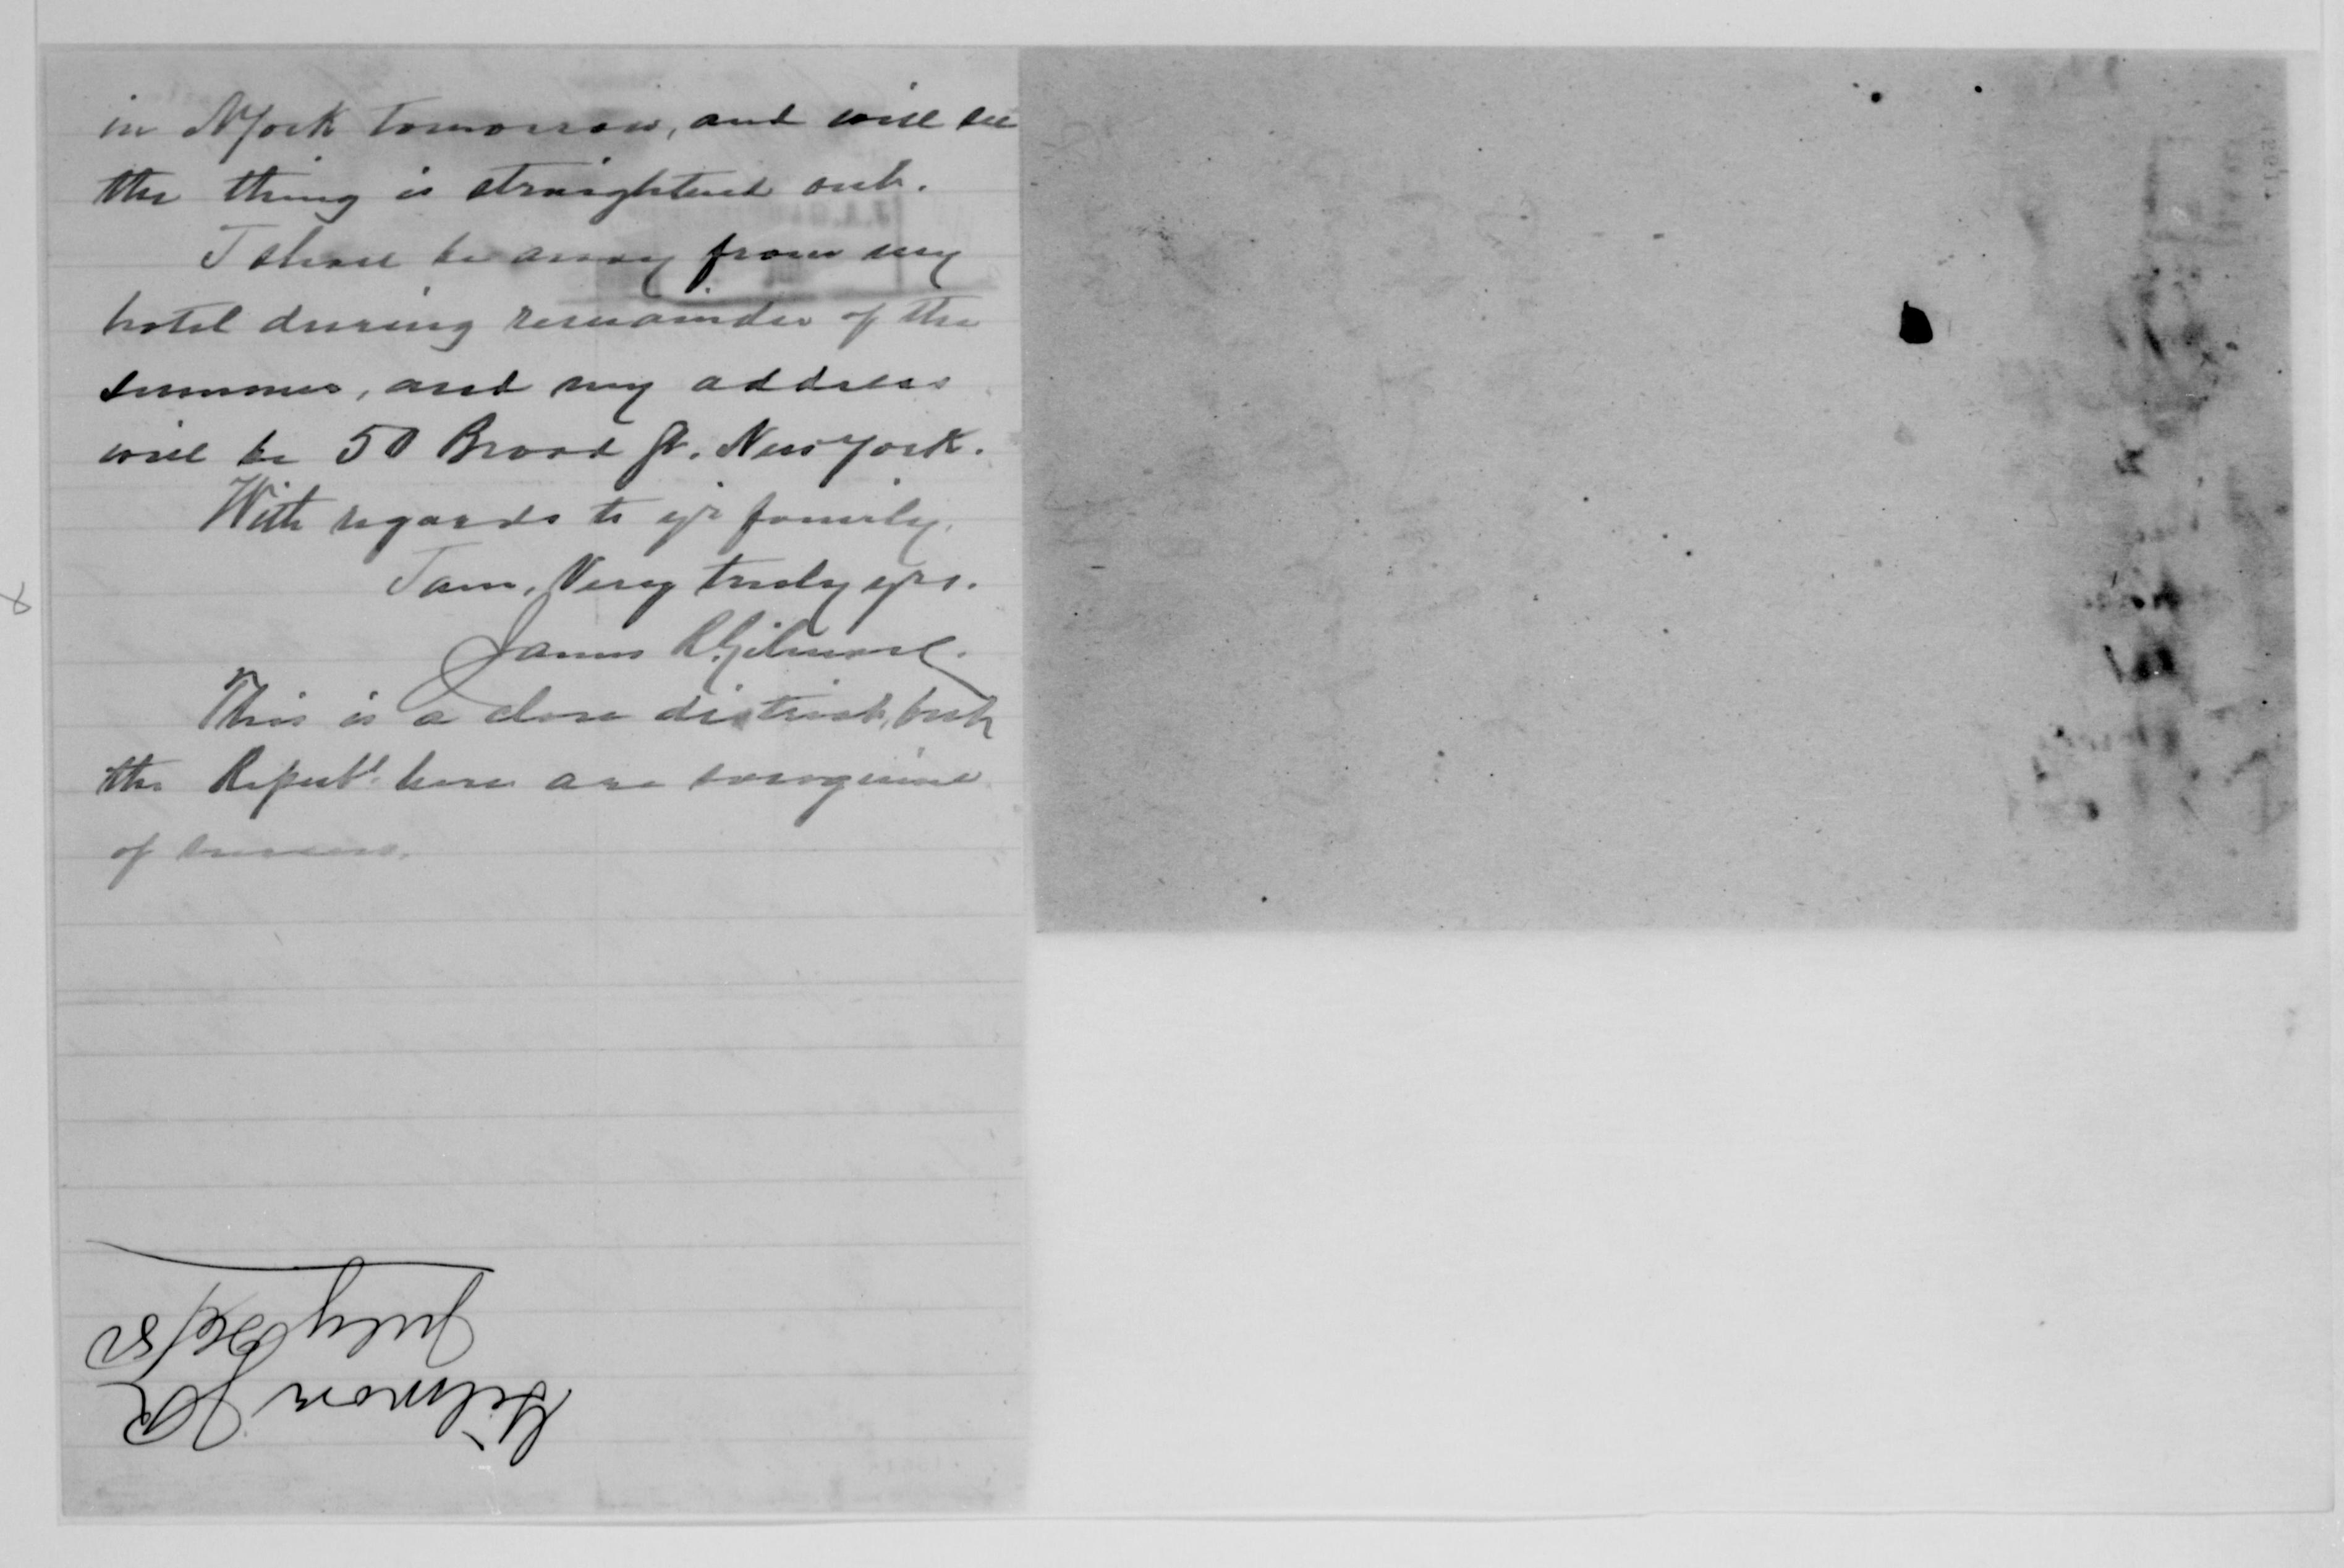 in N York tomorrow, and will see
the thing is straightened out.
I shall be away from my
hotel during remainder of the
summer, and my address
will be 50 Broad St. New York.
With regards to y'r family,
I am, Very truly yrs.
James R. Gilmore.
This is a close district, but
the Repubs. here are sanguine
of success.
Gilmore J R
July 26/80